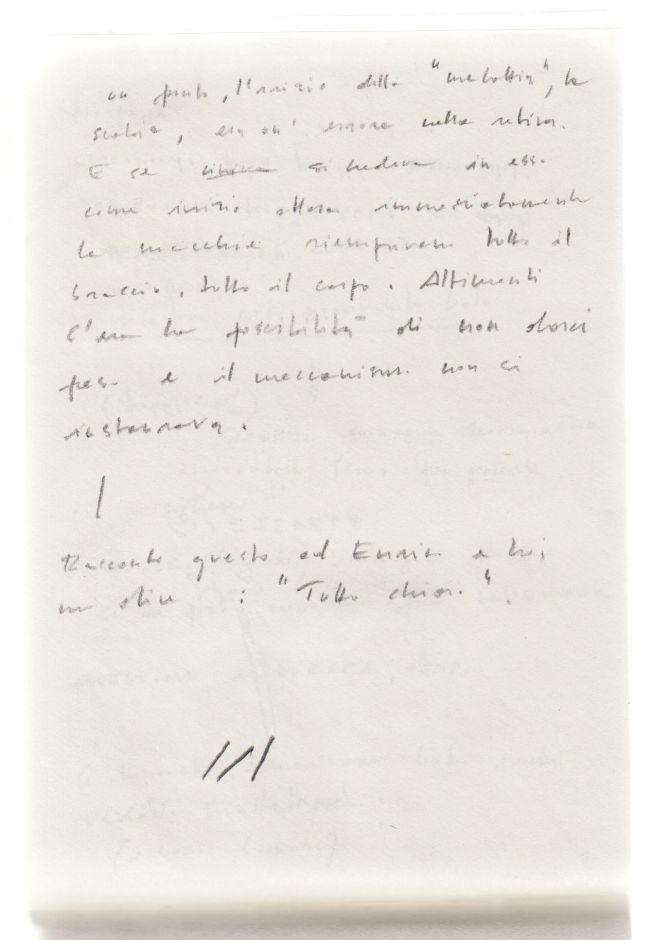 un punto, l'inizio della "malattia", la
scabia, era un' errore nella retina.
E se si vedeva in esso
come inizio allora immediatamente
le macchie riempivano tutto il
braccio, tutto il corpo. Altrimenti
C'era la possibilità di non darci
peso e il meccanismo non si
instaurava.
Racconto questo ad Enrico e lui
mi dice : "Tutto chiaro".